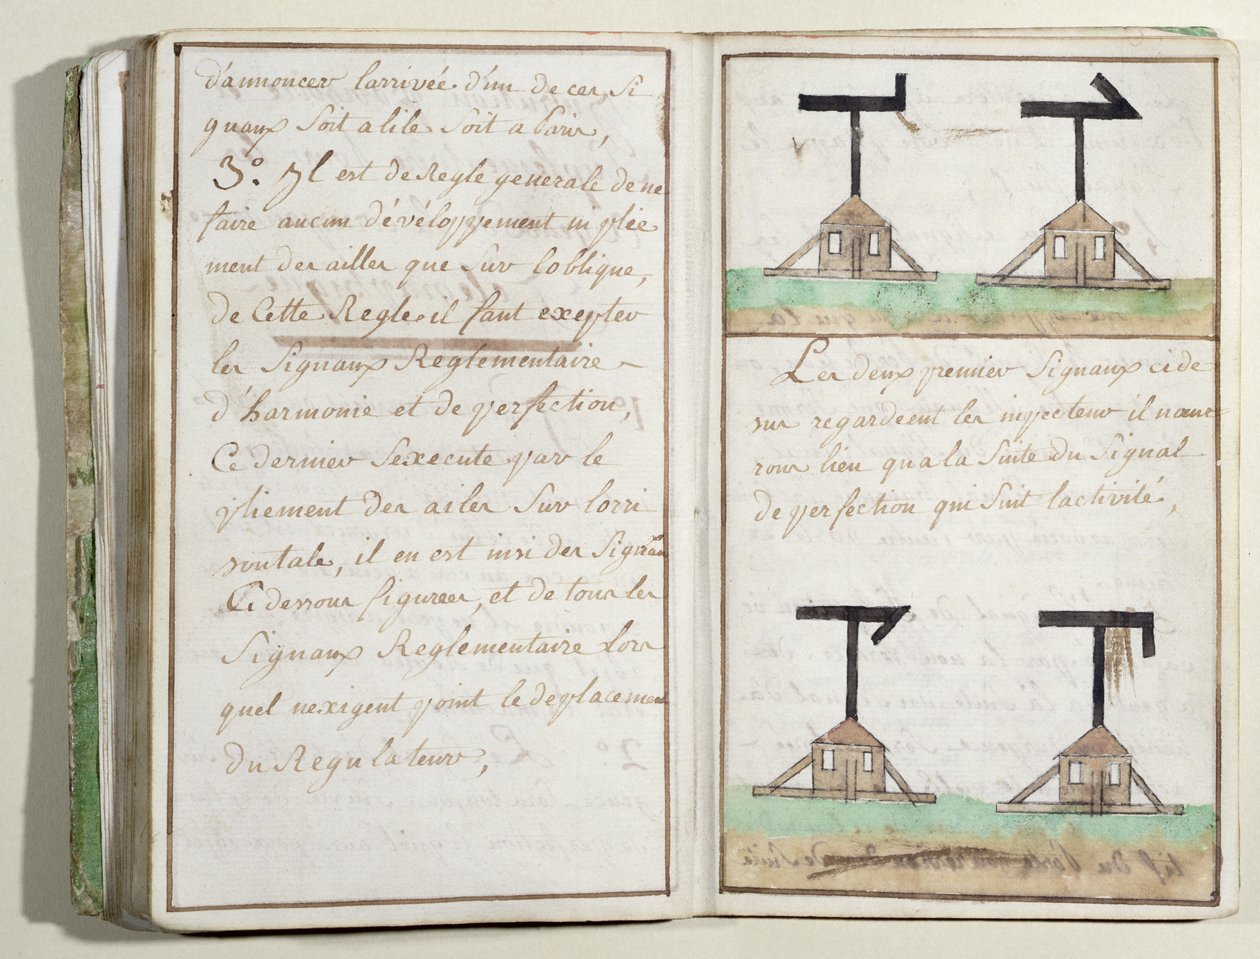 d'annoncer larrivée d'un de ces si
gnaux soit a lile soit a Paris,
3.° Yl est de Regle generale de ne
faire aucun dévéloppement ni plie
ment des ailles que sur loblique,
de Cette Regle il faut exepter
les signaux Reglementaire
d'harmonie et de perfection,
Ce dernier sexecute par le
pliement des ailes sur lorri
sontale, il en est insi des signaux
Ci dessous figurees, et de tous les
Signaux Reglementaire lors
quel nexigent point le deplacement
du Regulateur,
Les deux premier signaux ci de
sus regardeent les inspecteur il nauro
rons lieu qu a la suite du signal
de perfection qui suit lactivité,